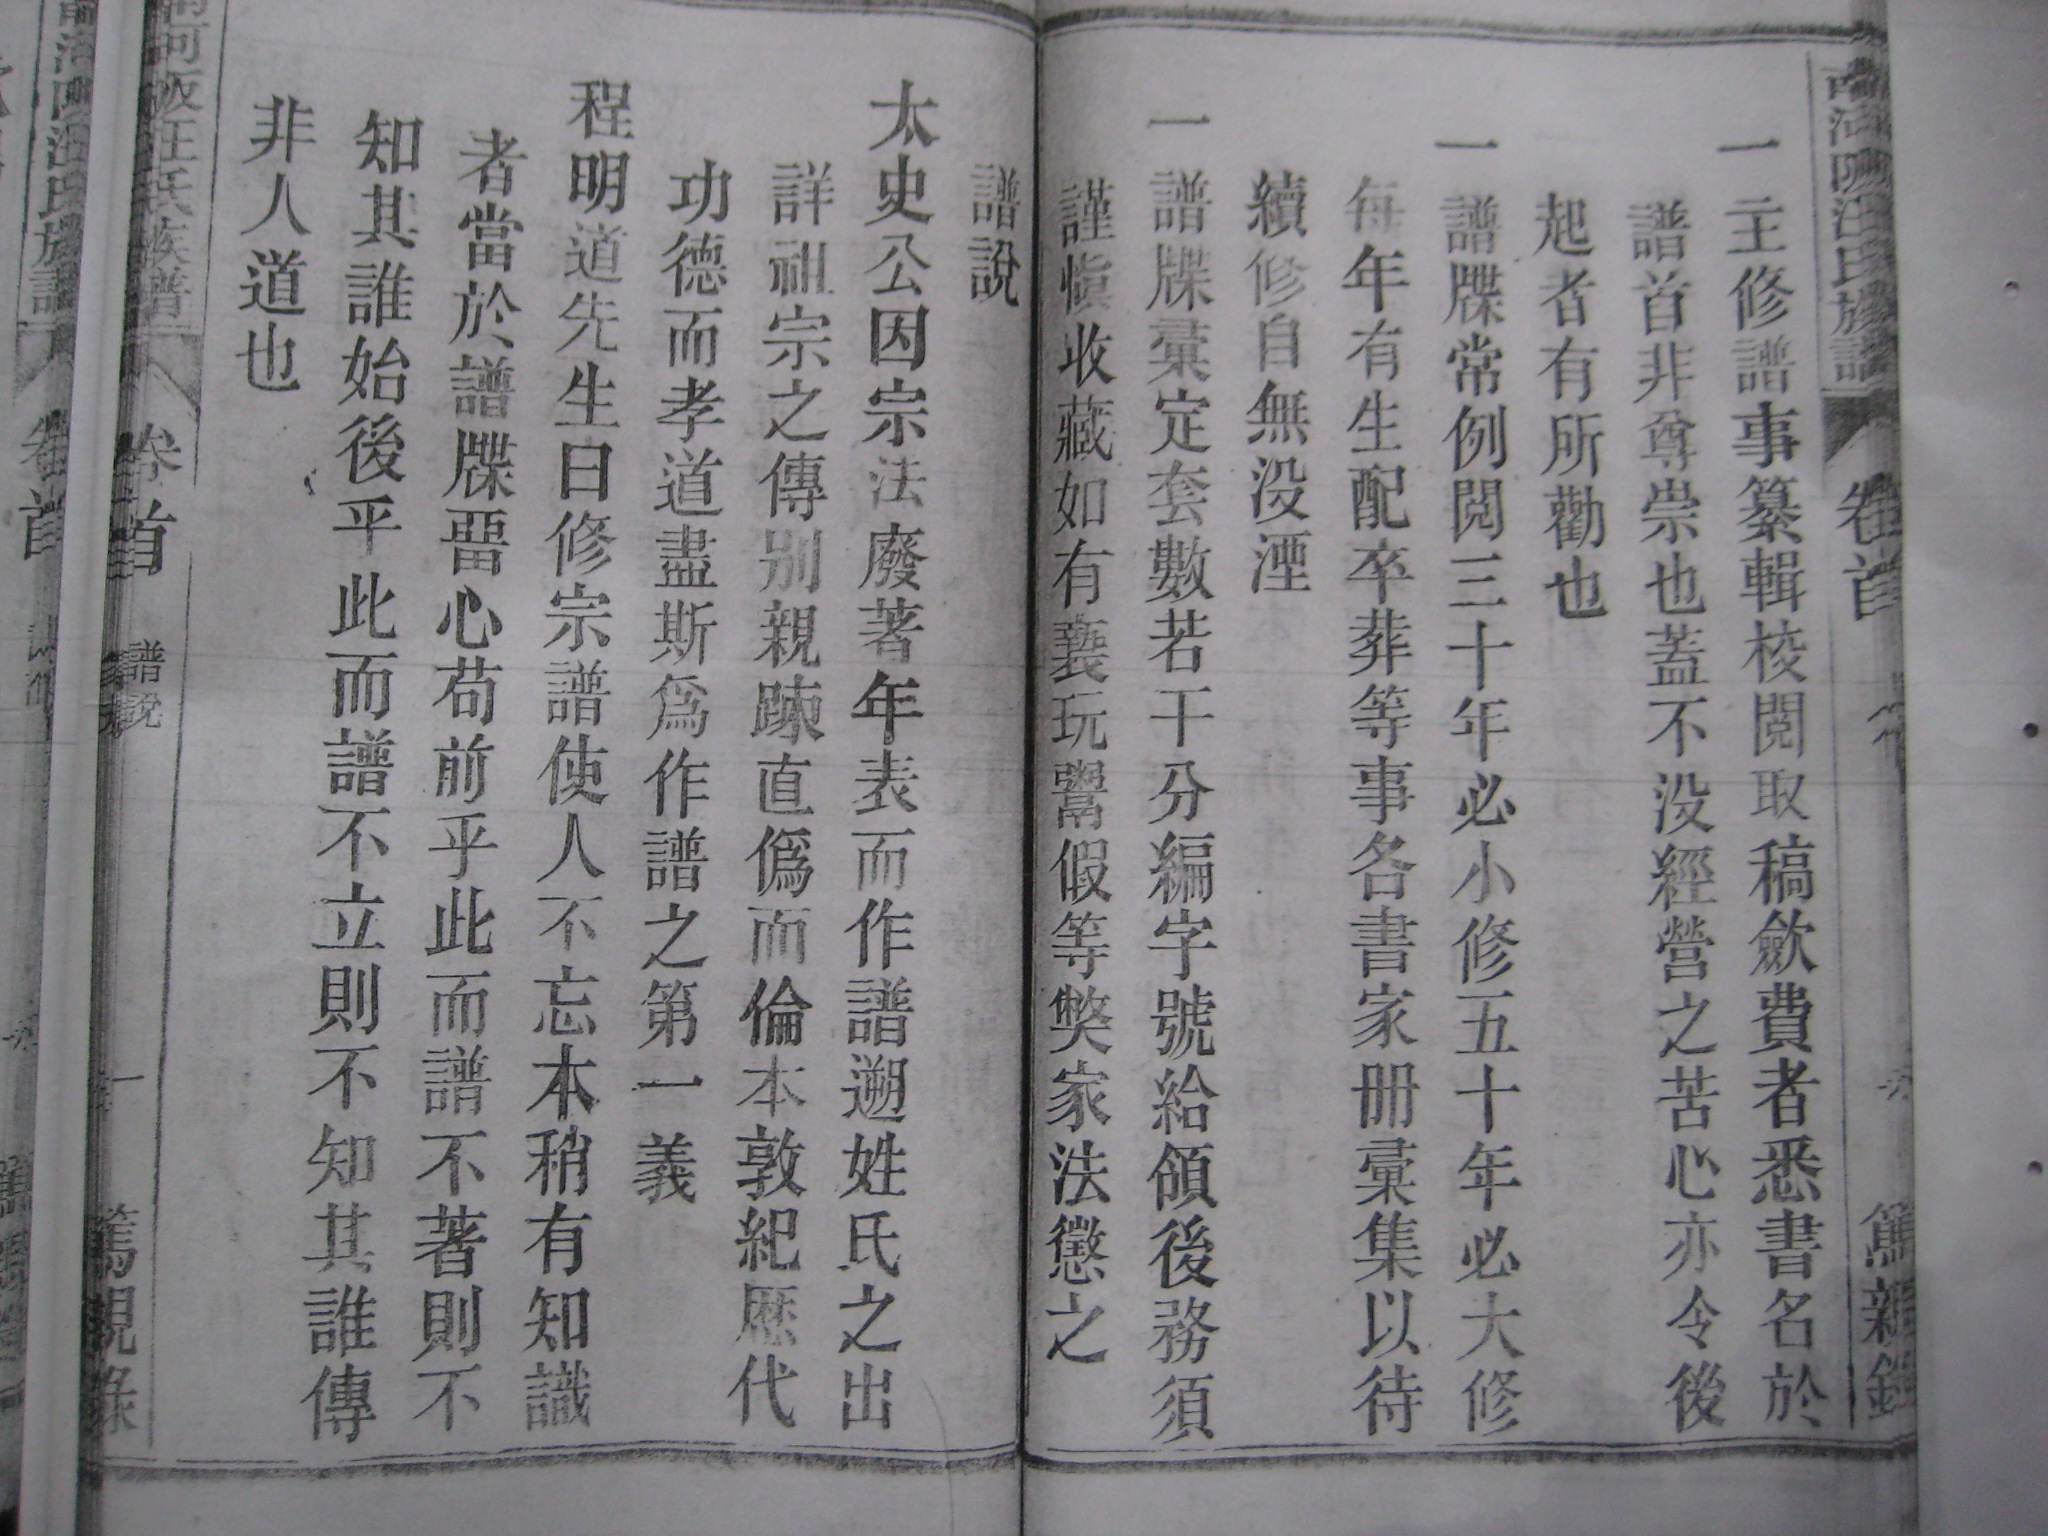 一主修譜事纂輯校閱取稿斂費者悉書名於
譜首非尊崇也蓋不没經營之苦心亦令後
起者有所勸也
一譜牒常例閱三十年必小修五十年必大修
每年有生配卒葬等事各書家册彙集以待
續修自無没湮
一譜牒彙定套數若干分編字號給領後務須
謹慎收藏如有褻玩鬻假等獘家法懲之
譜說
太史公因宗法廢著年表而作譜遡姓氏之出
詳祖宗之傳别親踈直僞而倫本敦紀歷代
功德而孝道盡斯爲作譜之第一義
程明道先生曰修宗譜使人不忘本稍有知識
者當於譜牒畱心苟前乎此而譜不著則不
知其誰始後乎此而譜不立則不知其誰傳
非人道也
汪氏族譜
卷首
譜說
一
篤親錄